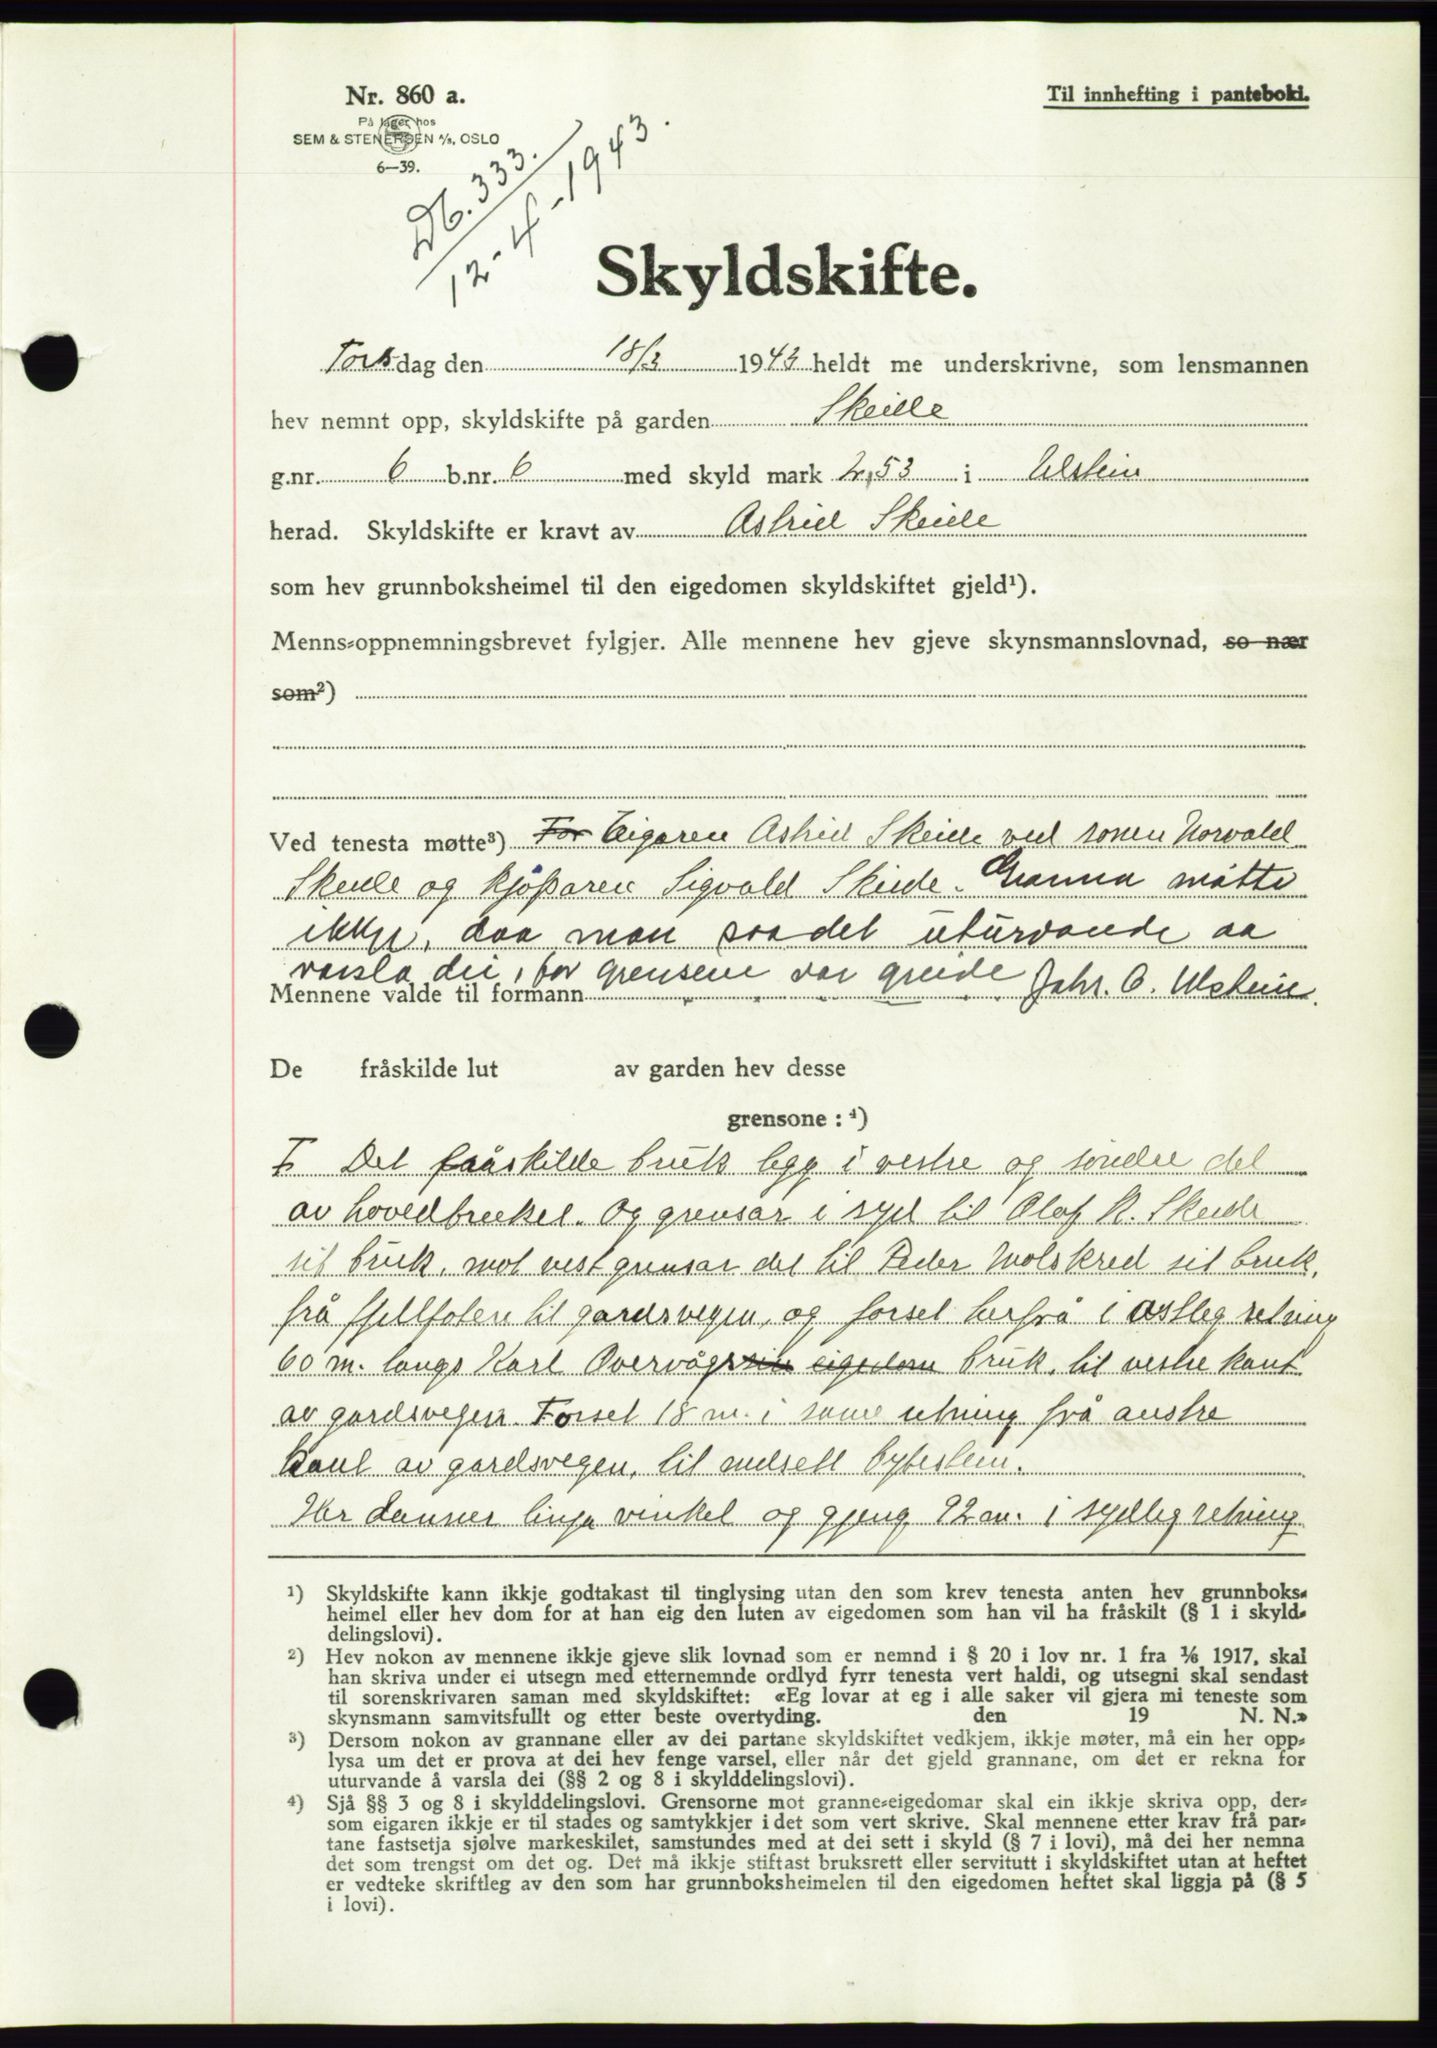 Nr. 860 a.
På lager hos
SEM & STENERSEN A/S, OSLO
6—39.
Til innhefting i panteboki.
Db. 333.
12-4-1943.
Skyldskifte.
Torsdag den 18/3 1943 heldt me underskrivne, som lensmannen
hev nemnt opp, skyldskifte på garden Skeide
g.nr. 6 b.nr. 6 med skyld mark 2,53 i Ulstein
herad. Skyldskifte er kravt av Astrid Skeide
som hev grunnboksheimel til den eigedomen skyldskiftet gjeld¹).
Menns-oppnemningsbrevet fylgjer. Alle mennene hev gjeve skynsmannslovnad, so nær
som²)
Ved tenesta møtte³) For Eigaren Astrid Skeide ved sonen Norvald
Skeide og kjøparen Sigvald Skeide. Granna møtte
ikkje, daa man saa det uturvande aa
varsla dei, for grensene var greide
Mennene valde til formann Johs. O. Ulstein.
De fråskilde lut av garden hev desse
grensone : ⁴)
Det fråskilde bruk ligg i vestre og søndre del
av hovedbruket. Og grensar i syd til Olaf K. Skeide
sit bruk, mot vest grensar det til Peder Wolskred sit bruk,
frå fjellfoten til gardsvegen, og forset herfrå i austleg retning
60 m. langs Karl Overvågs sin eigedom bruk, til vestre kant
av gardsvegen. Forset 18 m. i same retning frå austre
kant av gardsvegen, til nedsett bytestein.
Her danner linja vinkel og gjeng 92 m. i sydleg retning
¹) Skyldskifte kann ikkje godtakast til tinglysing utan den som krev tenesta anten hev grunnboks-
heimel eller hev dom for at han eig den luten av eigedomen som han vil ha fråskilt (§ 1 i skyld-
delingslovi).
²) Hev nokon av mennene ikkje gjeve slik lovnad som er nemnd i § 20 i lov nr. 1 fra 1/6 1917, skal
han skriva under ei utsegn med etternemnde ordlyd fyrr tenesta vert haldi, og utsegni skal sendast
til sorenskrivaren saman med skyldskiftet: «Eg lovar at eg i alle saker vil gjera mi teneste som
skynsmann samvitsfullt og etter beste overtyding. den 19 N. N.»
³) Dersom nokon av grannane eller av dei partane skyldskiftet vedkjem, ikkje møter, må ein her opp-
lysa um det er prova at dei hev fenge varsel, eller når det gjeld grannane, om det er rekna for
uturvande å varsla dei (§§ 2 og 8 i skylddelingslovi).
⁴) Sjå §§ 3 og 8 i skylddelingslovi. Grensorne mot granne-eigedomar skal ein ikkje skriva opp, der-
som eigaren ikkje er til stades og samtykkjer i det som vert skrive. Skal mennene etter krav frå par-
tane fastsetja sjølve markeskilet, samstundes med at dei sett i skyld (§ 7 i lovi), må dei her nemna
det som trengst om det og. Det må ikkje stiftast bruksrett eller servitutt i skyldskiftet utan at heftet
er vedteke skriftleg av den som har grunnboksheimelen til den eigedomen heftet skal liggja på (§ 5
i lovi).